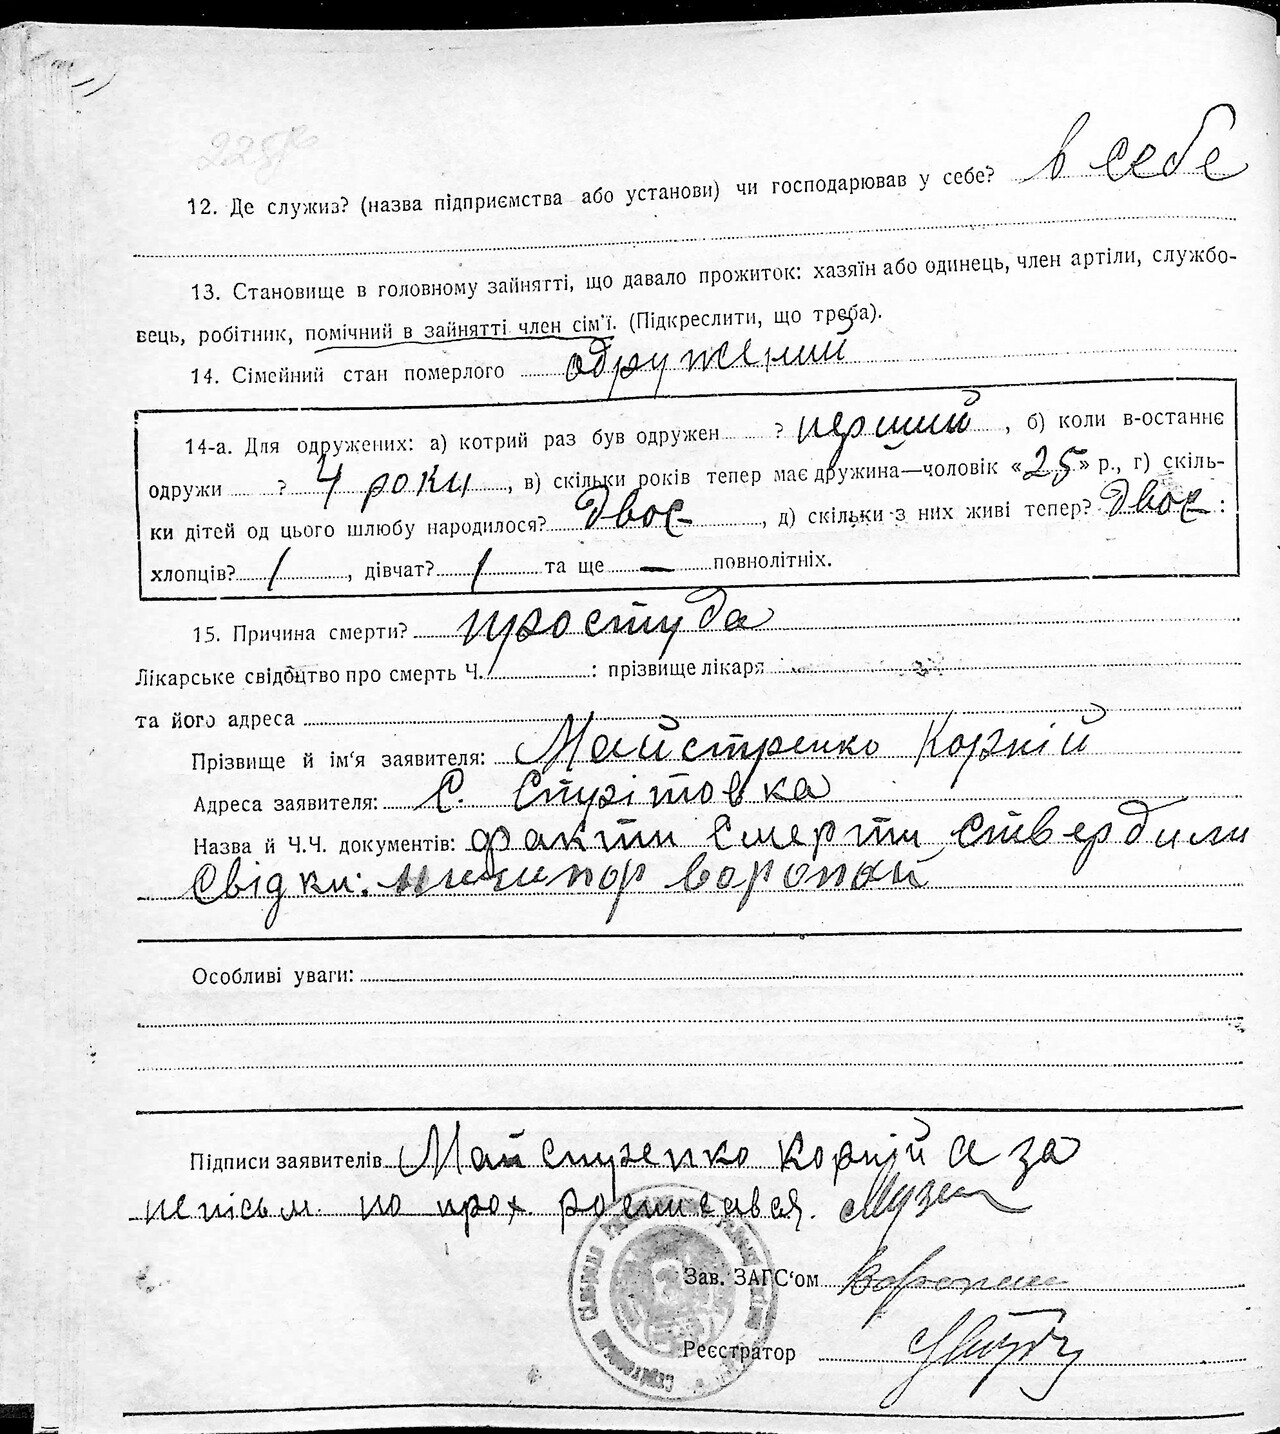 12. Де служив? (назва підприємства або установи) чи господарював у себе? в себе
13. Становище в головному зайнятті, що давало прожиток: хазяїн або одинець, член артіли, службо-
вець, робітник, помічний в зайнятті член сім'ї. (Підкреслити, що треба).
14. Сімейний стан померлого одружений
14-а. Для одружених: а) котрий раз був одружен ? перший , б) коли в-останнє
одружи ? 4 роки , в) скільки років тепер має дружина—чоловік «25» р., г) скіль-
ки дітей од цього шлюбу народилося? двоє , д) скільки з них живі тепер? двоє :
хлопців? 1 , дівчат? 1 та ще — повнолітніх.
15. Причина смерти? простуда
Лікарське свідоцтво про смерть Ч. : прізвище лікаря
та його адреса
Прізвище й ім'я заявителя: Майстренко Корній
Адреса заявителя: С. Стрітовка
Назва й Ч.Ч. документів: факти смерти ствердили
свідки: Ничипор Воропай
Особливі уваги:
Підписи заявителів Майстренко Корній а за
непісьм. по прох росписався.
Зав. ЗАГС'ом
Реєстратор